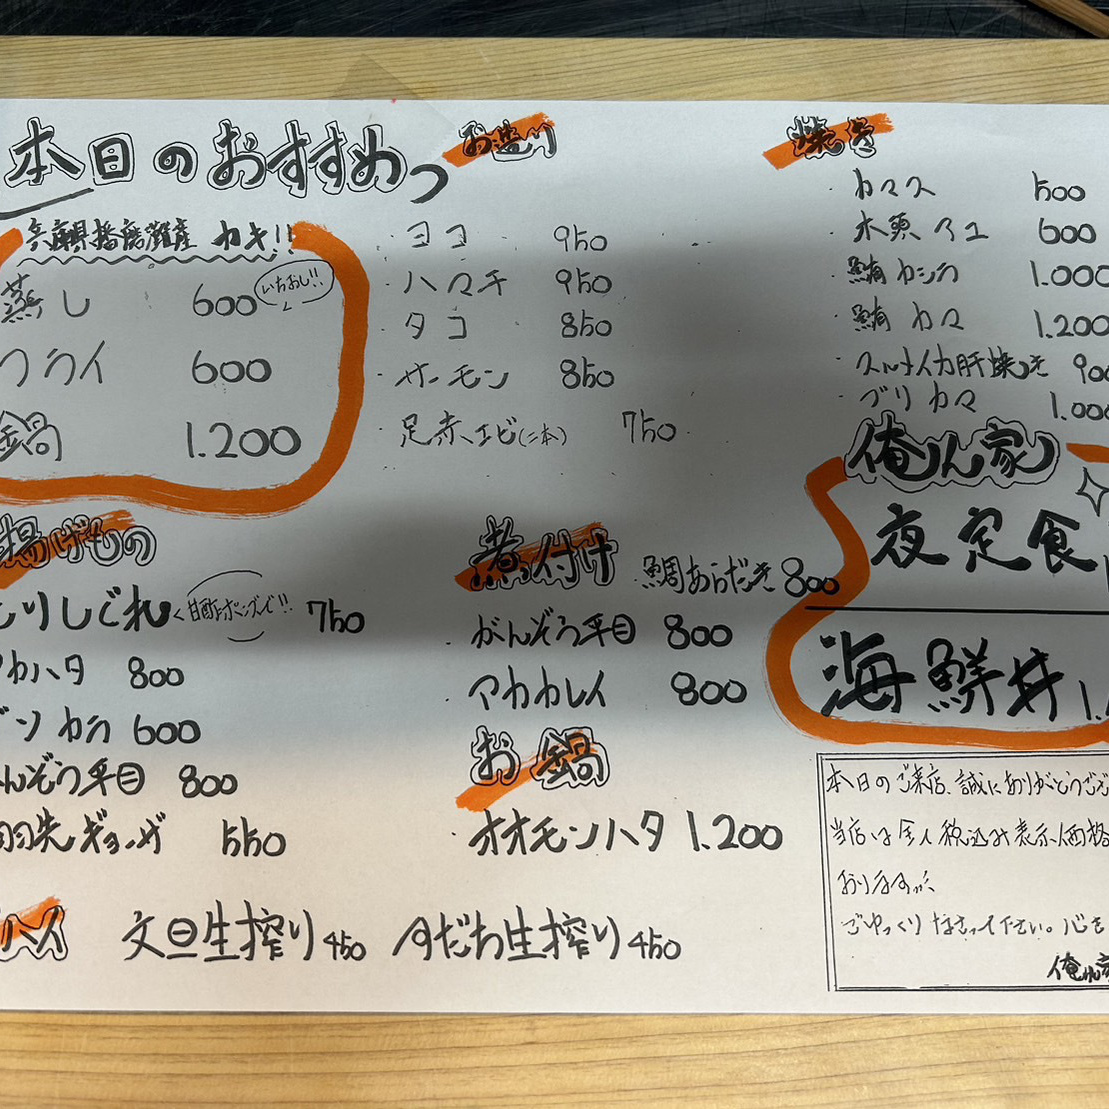 本日のおすすめっ
兵庫県播磨灘産 カキ!!
蒸し 600 いちおし!!
フライ 600
鍋 1.200
お造り
・ヨコ 950
・ハマチ 950
・タコ 850
・サーモン 850
・足赤エビ(二本) 750
焼き
・カマス 500
・木葉カレイ 600
・鮪カシラ 1.000
・鮪カマ 1.200
・スルメイカ肝焼き 900
・ブリカマ 1.000
俺ん家
夜定食
海鮮丼 1.
揚げもの
とりしぐれ 甘酢ポンズで!! 750
アカハタ 800
ガシカラ 600
がんぞう平目 800
羽先ギョーザ 550
煮付け
鯛あらだき 800
・がんぞう平目 800
・アカカレイ 800
お鍋
・オオモンハタ 1.200
ハイ
文旦生搾り 450 すだち生搾り 450
本日のご来店、誠にありがとうござ
当店は全て税込み表示価格
おりますが、
ごゆっくりなさって下さい。心を
俺ん家